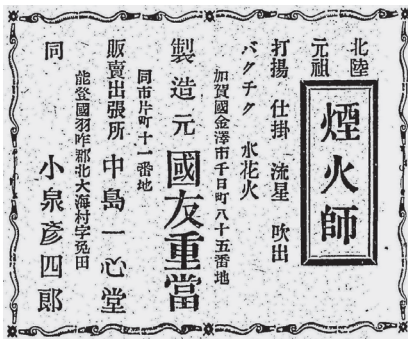 北陸
元祖
煙火師
打揚 仕掛 流星 吹出
バクチク 水花火
加賀國金澤市千日町八十五番地
製造元 國友重當
同市片町十一番地
販賣出張所 中島一心堂
能登國羽咋郡北大海村字免田
同 小泉彥四郎